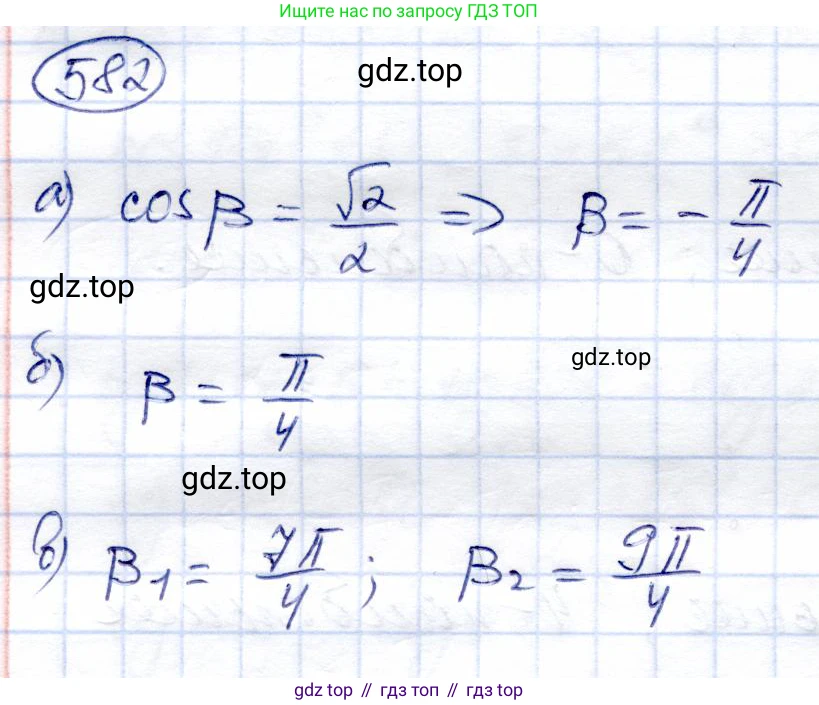 Ищите нас по запросу ГДЗ ТОП
582
gdz.top
а) cos β = √2/2 => β = - π/4
gdz.top
б) β = π/4
gdz.top
gdz.top
в) β₁ = 7π/4 ; β₂ = 9π/4
gdz top // гдз топ // gdz top